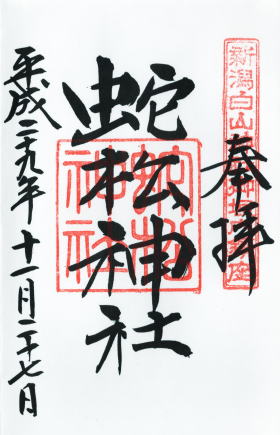 新潟白山
奉拝
蛇松神社
蛇松
神社
平成二十九年十一月二十七日